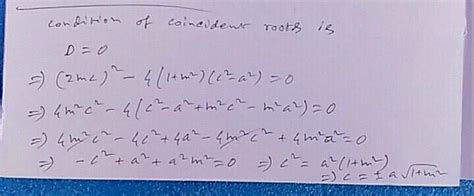 condition of coincident roots is
D = 0
⇒ (2mc)² - 4(1+m²)(c²-a²) = 0
⇒ 4m²c² - 4(c²-a²+m²c²-m²a²) = 0
⇒ 4m²c² - 4c² + 4a² - 4m²c² + 4m²a² = 0
⇒ -c² + a² + a²m² = 0 ⇒ c² = a²(1+m²)
⇒ c = ± a√1+m²